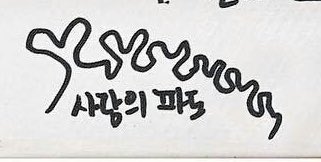 사랑의 파도